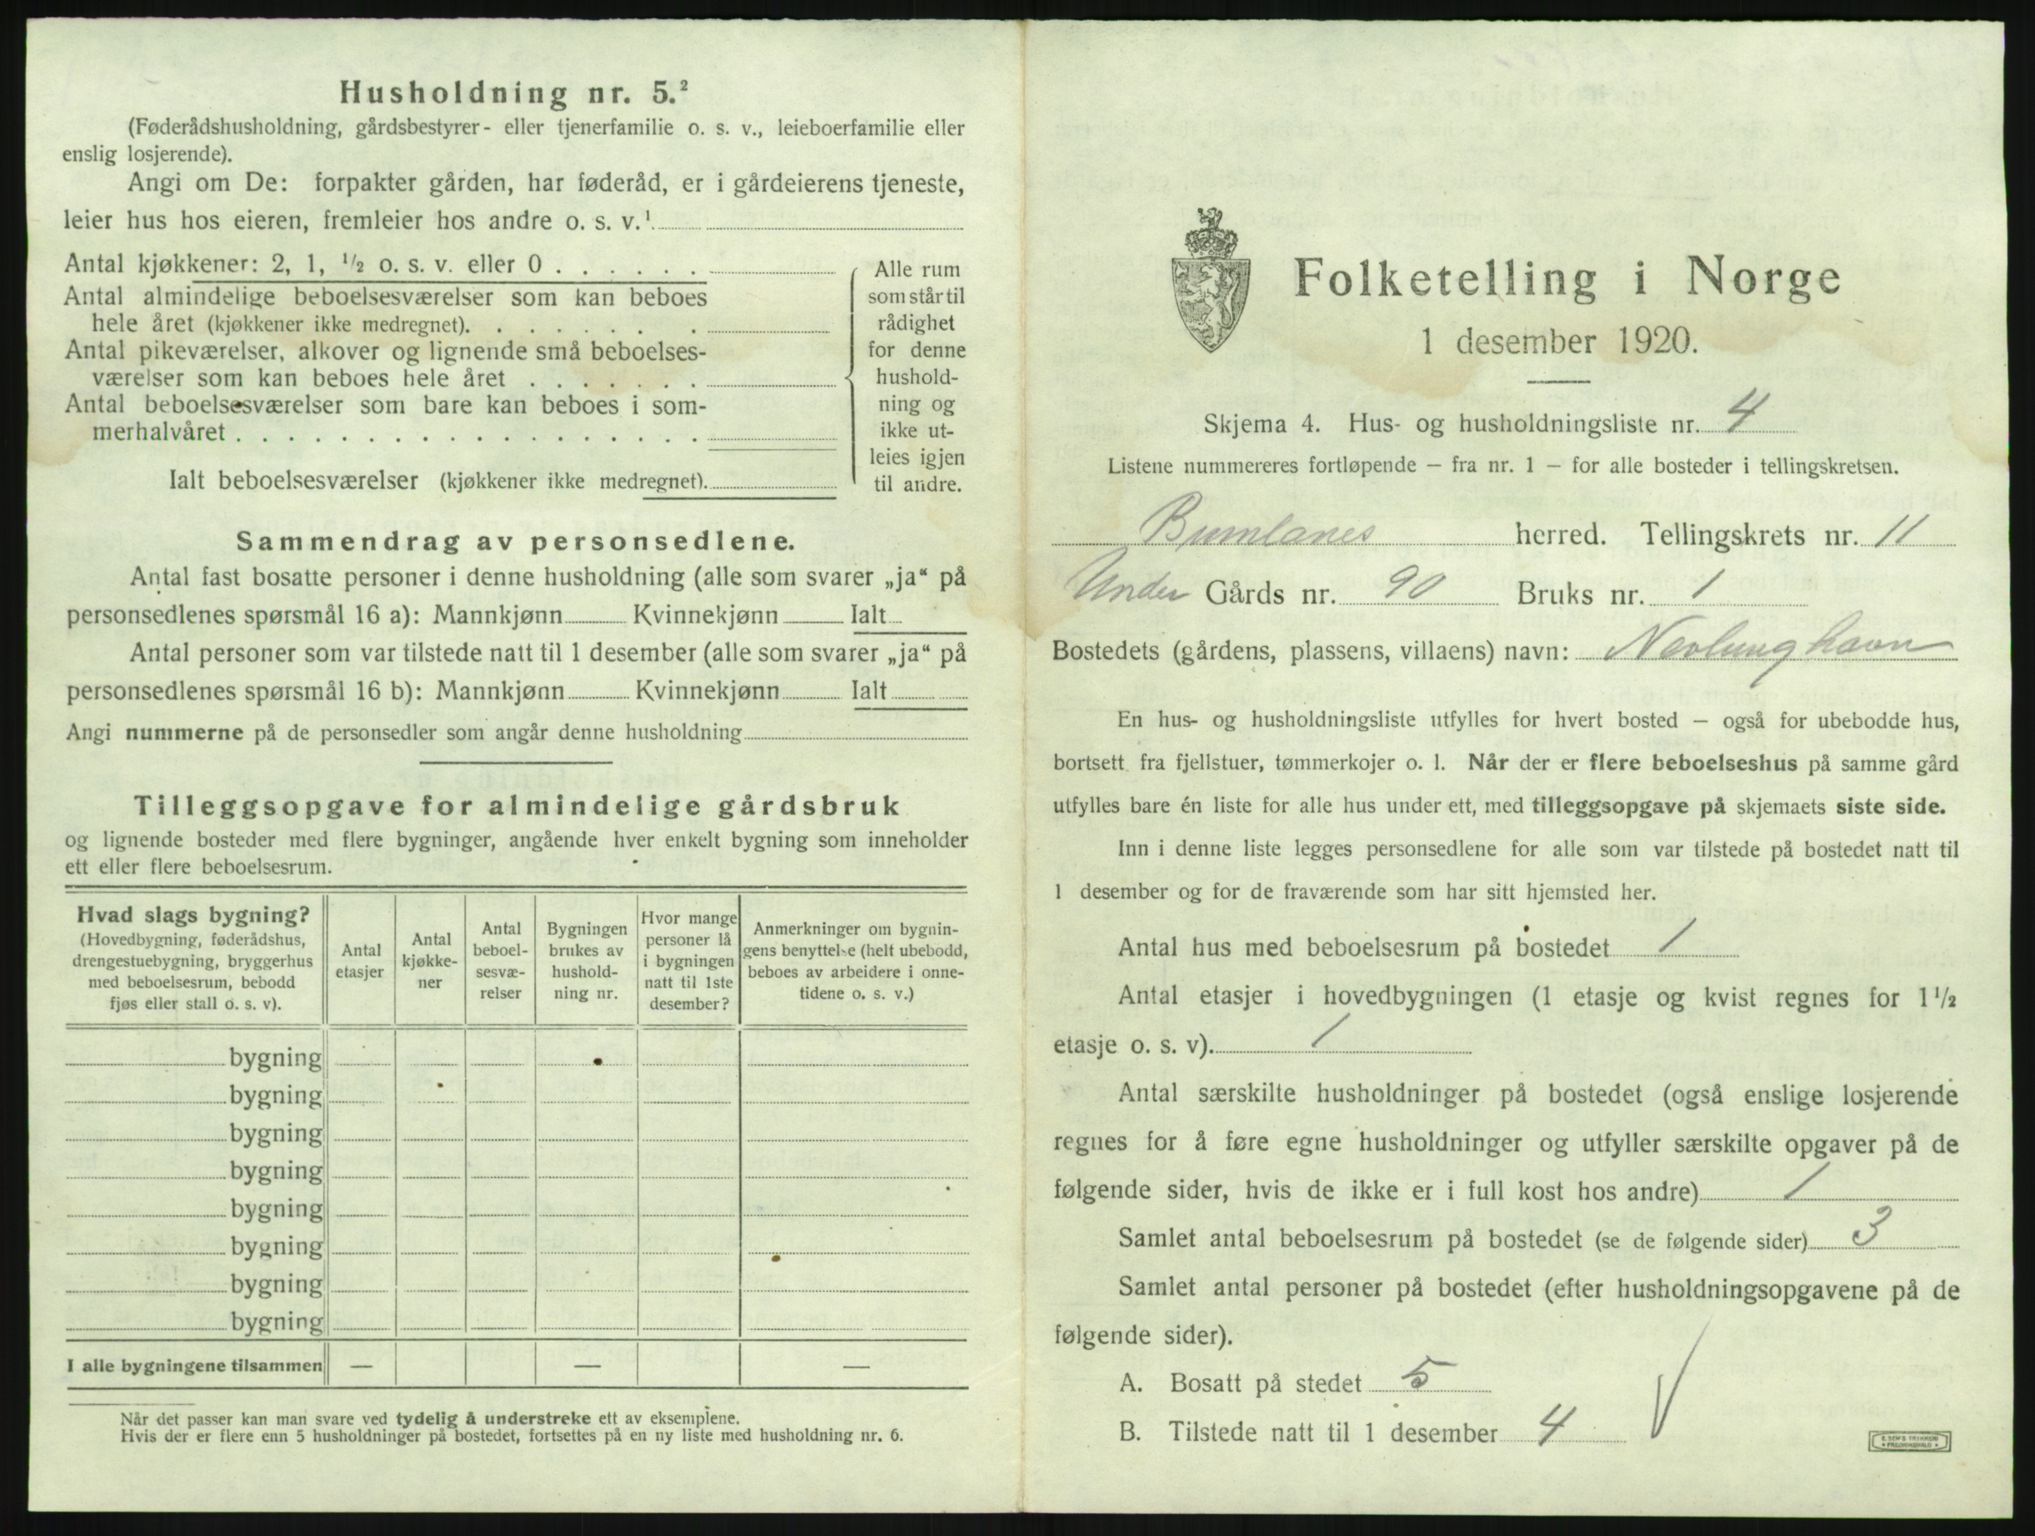 Husholdning nr. 5.²
(Føderådshusholdning, gårdsbestyrer- eller tjenerfamilie o. s. v., leieboerfamilie eller
enslig losjerende).
Angi om De: forpakter gården, har føderåd, er i gårdeierens tjeneste,
leier hus hos eieren, fremleier hos andre o. s. v.¹
Antal kjøkkener: 2, 1, ½ o. s. v. eller 0 . . . . . .
Antal almindelige beboelsesværelser som kan beboes
hele året (kjøkkener ikke medregnet). . . . . . . .
Antal pikeværelser, alkover og lignende små beboelses-
værelser som kan beboes hele året . . . . . . .
Antal beboelsesværelser som bare kan beboes i som-
merhalvåret . . . . . . . . . . . . . . . . . .
Ialt beboelsesværelser (kjøkkener ikke medregnet).
Alle rum
som står til
rådighet
for denne
hushold-
ning og
ikke ut-
leies igjen
til andre.
Sammendrag av personsedlene.
Antal fast bosatte personer i denne husholdning (alle som svarer „ja“ på
personsedlenes spørsmål 16 a): Mannkjønn Kvinnekjønn Ialt
Antal personer som var tilstede natt til 1 desember (alle som svarer „ja“ på
personsedlenes spørsmål 16 b): Mannkjønn Kvinnekjønn Ialt
Angi nummerne på de personsedler som angår denne husholdning
Tilleggsopgave for almindelige gårdsbruk
og lignende bosteder med flere bygninger, angående hver enkelt bygning som inneholder
ett eller flere beboelsesrum.
Hvad slags bygning?
(Hovedbygning, føderådshus,
drengestuebygning, bryggerhus
med beboelsesrum, bebodd
fjøs eller stall o. s. v).
Antal
etasjer
Antal
kjøkke-
ner
Antal
beboel-
sesvæ-
relser
Bygningen
brukes av
hushold-
ning nr.
Hvor mange
personer lå
i bygningen
natt til 1ste
desember?
Anmerkninger om bygnin-
gens benyttelse (helt ubebodd,
beboes av arbeidere i onne-
tidene o. s. v.)
bygning
bygning
bygning
bygning
bygning
bygning
bygning
bygning
I alle bygningene tilsammen — — —
Når det passer kan man svare ved tydelig å understreke ett av eksemplene.
Hvis der er flere enn 5 husholdninger på bostedet, fortsettes på en ny liste med husholdning nr. 6.
Folketelling i Norge
1 desember 1920.
Skjema 4. Hus- og husholdningsliste nr. 4
Listene nummereres fortløpende – fra nr. 1 – for alle bosteder i tellingskretsen.
Brunlanes herred. Tellingskrets nr. 11
Under Gårds nr. 90 Bruks nr. 1
Bostedets (gårdens, plassens, villaens) navn: Nevlunghavn
En hus- og husholdningsliste utfylles for hvert bosted – også for ubebodde hus,
bortsett fra fjellstuer, tømmerkojer o. l. Når der er flere beboelseshus på samme gård
utfylles bare én liste for alle hus under ett, med tilleggsopgave på skjemaets siste side.
Inn i denne liste legges personsedlene for alle som var tilstede på bostedet natt til
1 desember og for de fraværende som har sitt hjemsted her.
Antal hus med beboelsesrum på bostedet 1
Antal etasjer i hovedbygningen (1 etasje og kvist regnes for 1½
etasje o. s. v). 1
Antal særskilte husholdninger på bostedet (også enslige losjerende
regnes for å føre egne husholdninger og utfyller særskilte opgaver på de
følgende sider, hvis de ikke er i full kost hos andre) 1
Samlet antal beboelsesrum på bostedet (se de følgende sider) 3
Samlet antal personer på bostedet (efter husholdningsopgavene på de
følgende sider).
A. Bosatt på stedet 5
B. Tilstede natt til 1 desember 4